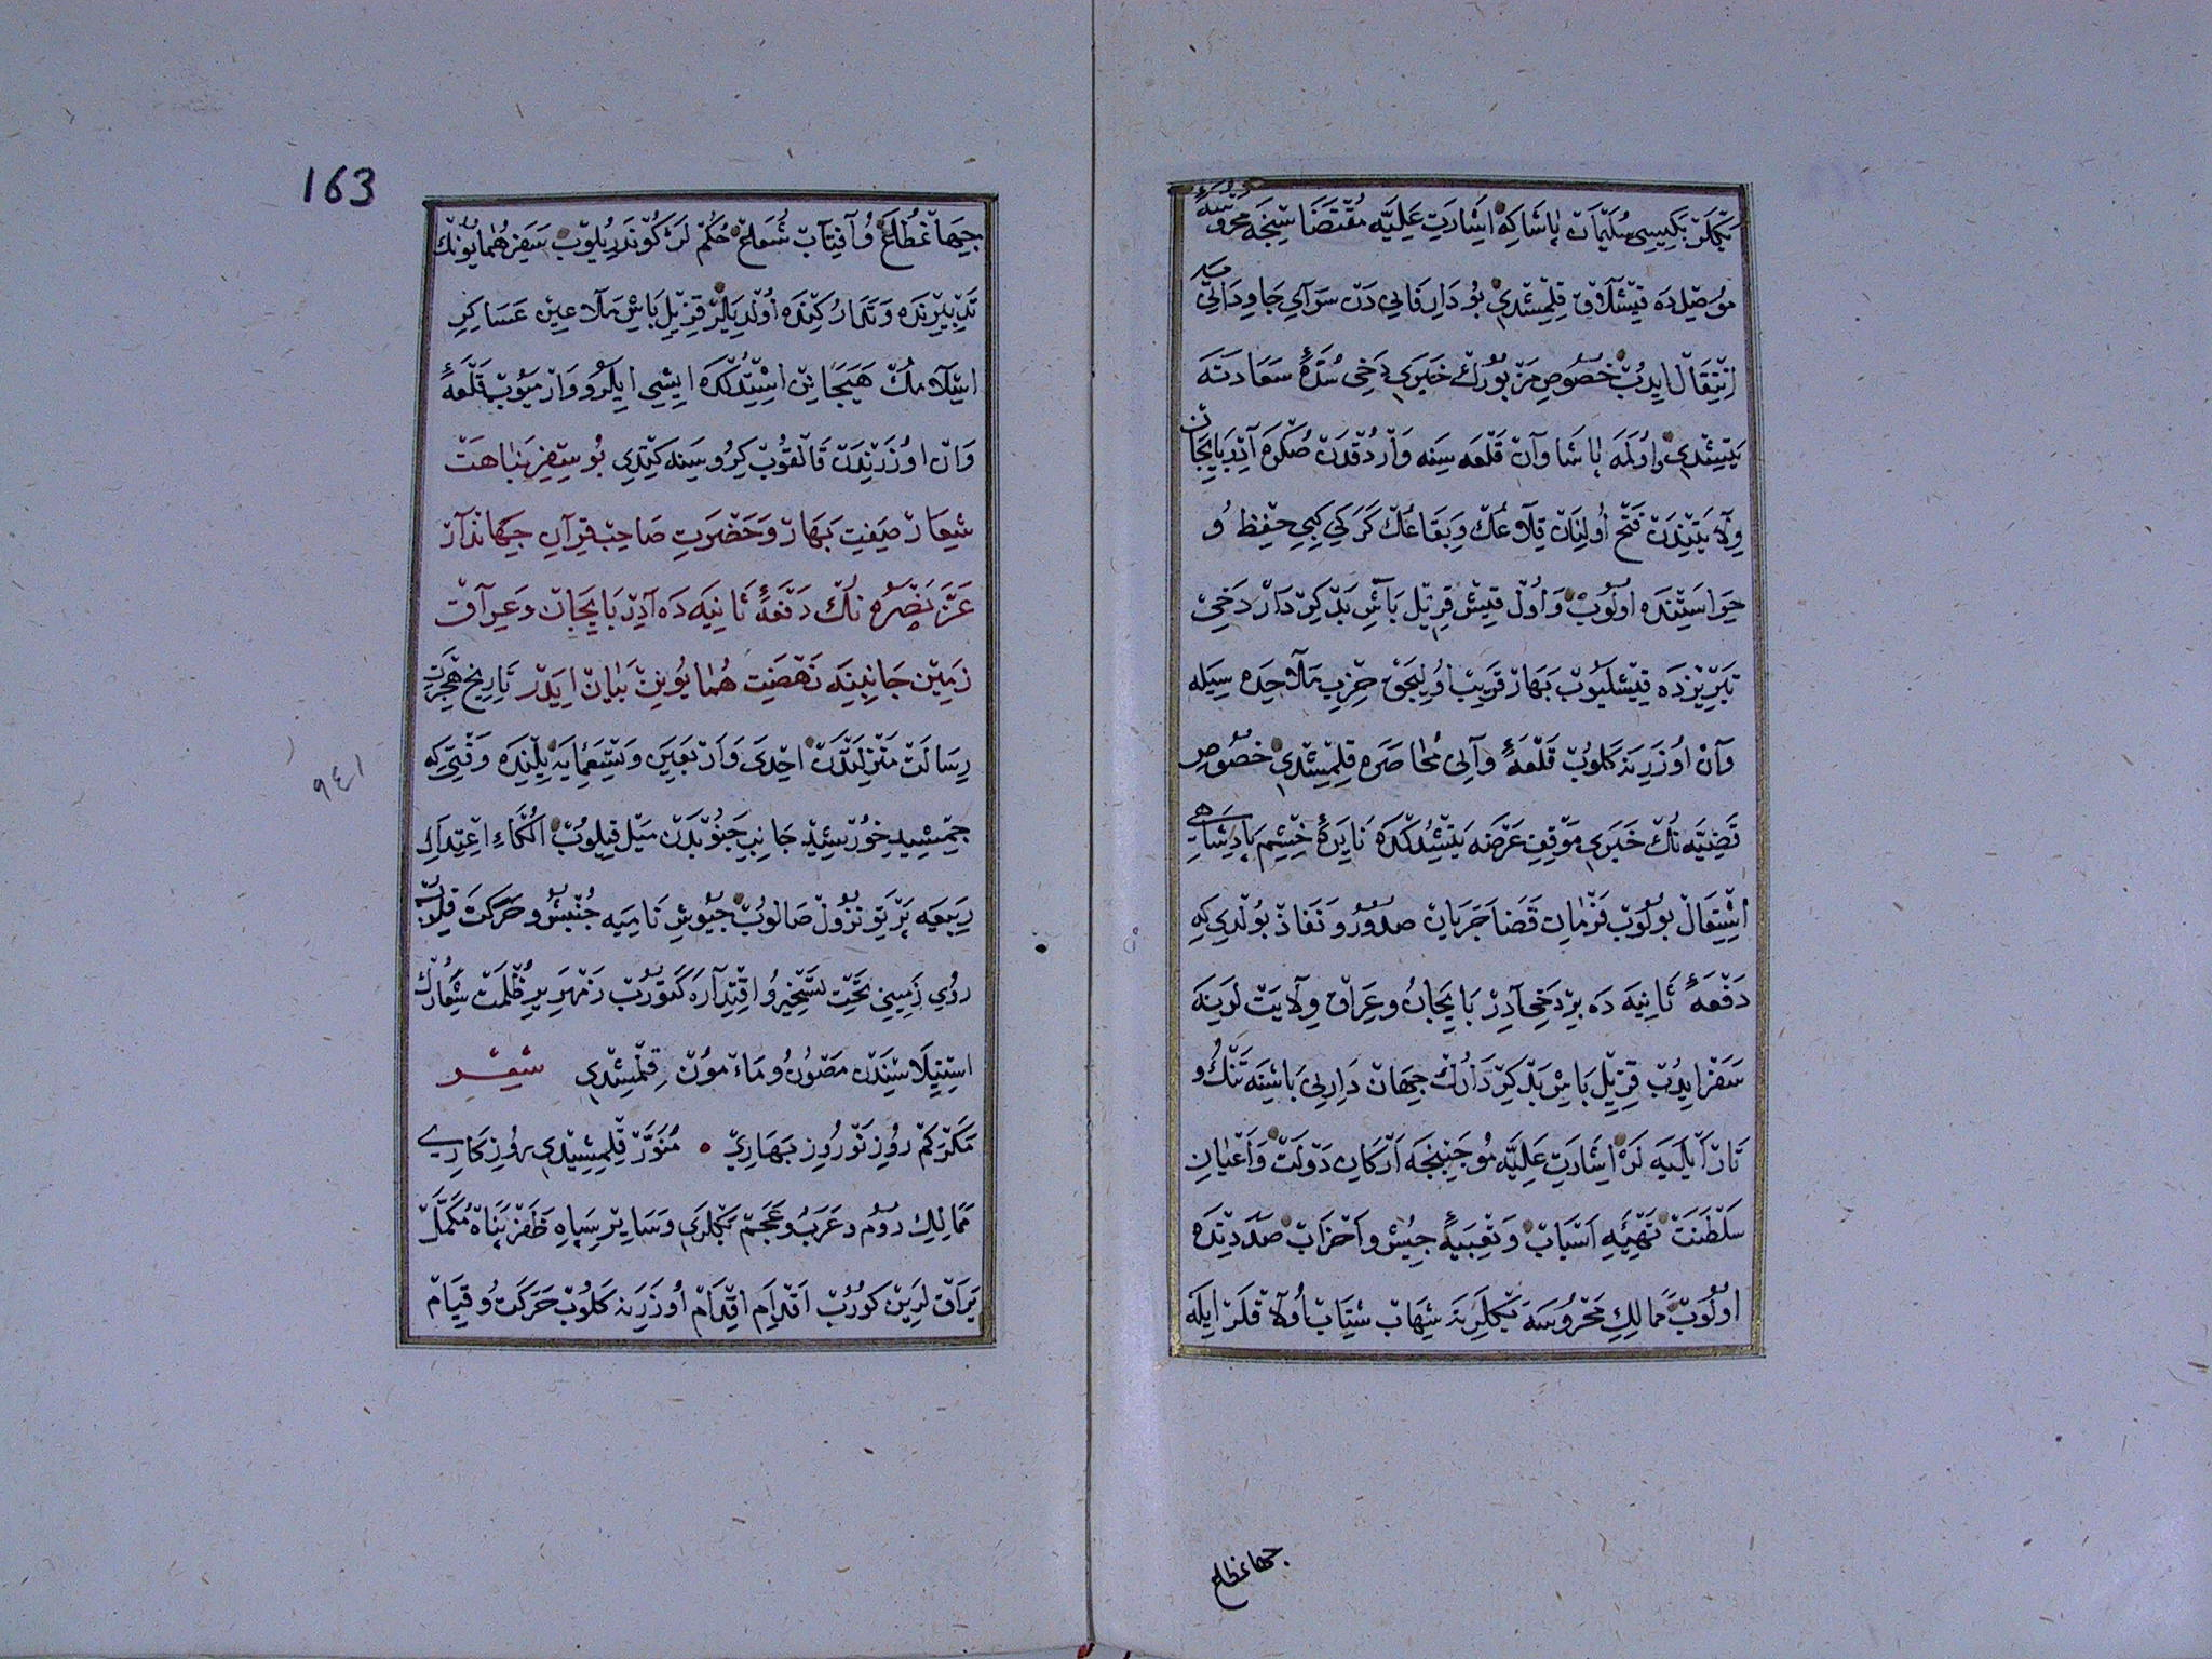 بكلربكيسى سليمان پاشا كه اشارت عليه مقتضاسنجه محروسهٔ
موصلده قيشلاق قلمشدى بو دار فانى دن سراى جاودانى يه
انتقال ايدوب خصوص مزبورك خبرى دخى سدهٔ سعادته
يتشدى و اولمه پاشا وان قلعه سينه واردقدن صكره آذربايجان
ولايتندن فتح اولنان قلاعك و بقاعك كركى كبى حفظ و
حراستنده اولوب و اول قيش قزيل باش بدكردار دخى
تبريزده قيشليوب بهار قريب اوليجق حزب ملاحده سيله
وان اوزرينه كلوب قلعهٔ وانى محاصره قلمشدى خصوص
قضيه نك خبرى موقف عرضه يتشدكده نايرهٔ خشم پادشاهى
اشتعال بولوب فرمان قضا جريان صدور و نفاذ بولدى كه
دفعهٔ ثانيه ده بر دخى آذربايجان و عراق ولايت لرينه
سفر ايدوب قزيل باش بدكردارك جهان دارلى باشينه تنك و
تار ايليه لر اشارت عليه موجبنجه اركان دولت و اعيان
سلطنت تهيهٔ اسباب و تعبيهٔ جيش و احزاب صددنده
اولوب ممالك محروسه بكلرينه شهاب شتاب اولاقلر ايله
جهانمطاع
163
جهانمطاع و آفتاب شعاع حكم لر كوندريلوب سفر همايونك
تدبيرنده و تداركنده اولديلر قزيل باش ملاعين عساكر
اسلامك هيجانن اشتدكده ايشى ايلرو وارميوب قلعهٔ
وان اوزرندن قالقوب كروسنه كتدى بو سفر نباهت
شعار صفت بهار و حضرت صاحب قران جهاندار
عز نصره نك دفعهٔ ثانيه ده آذربايجان و عراق
زمين جانبينه نهضت همايونن بيان ايدر تاريخ هجرت
رسالت منزلتدن احدى و اربعين و تسعمايه ييلنده وقتى كه
٩٤١
جمشيد خورشيد جانب جنوبدن ميل قيلوب الكاء اعتدال
ربيعه پرتو نزول صالوب جيوش ناميه جنبش و حركت قيلوب
روى زمينى تحت تسخير و اقتداره كتورب زمهرير ظلمت شعارك
استيلاسندن مصون و مأمون قلمشدى شعر
مكركم روز نوروز بهارى • منور قلمشدى روزكارى
ممالك روم و عرب و عجم بكلرى و ساير سپاه ظفرپناه مكمل
يراق لرين كوروب اقدام اقدام اوزرينه كلوب حركت و قيام